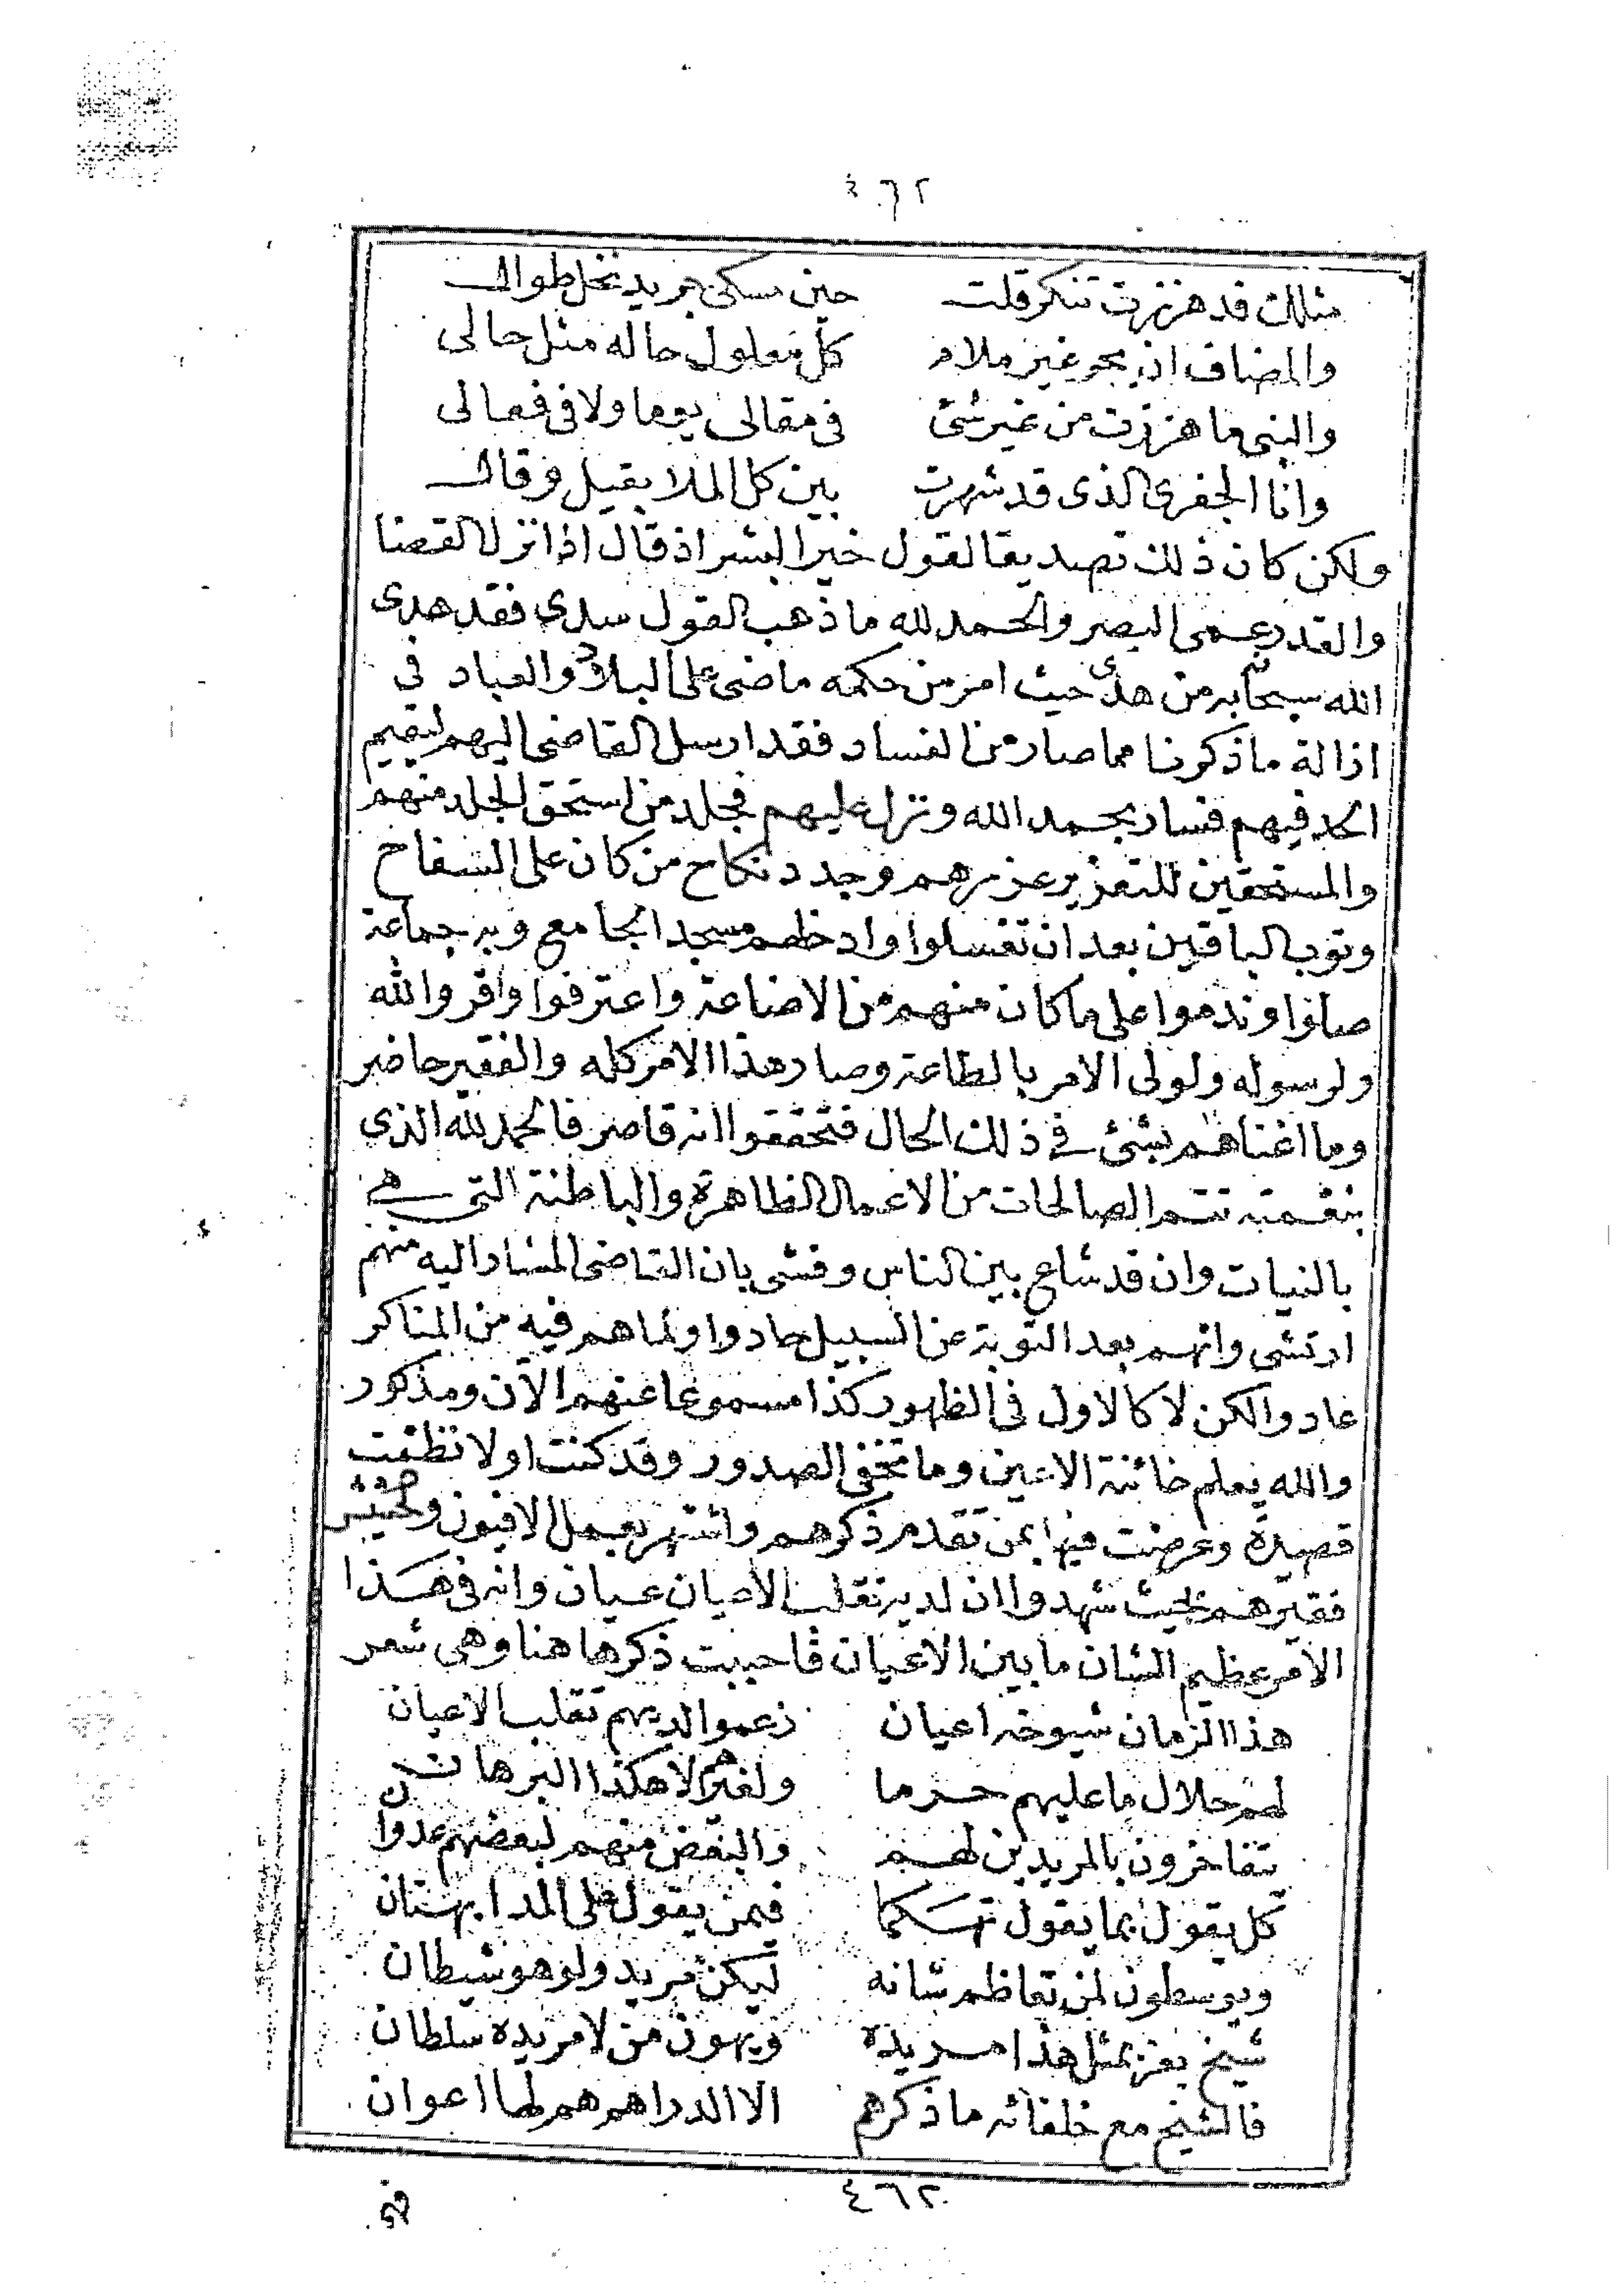 ٤٦٢
مثلك قد هززت تنكر قلت حين مسكى جريد نخل طوال
والمضاف ان يجر غير ملام كل معلول حاله مثل حالى
والنبى ما هززت من غير شئ فى مقالى يوما ولا فى فعالى
وانا الجفرى الذى قد شهرت بين كل الملا بقيل وقال
ولكن كان ذلك تصديقا لقول خير البشر اذ قال اذا نزل القضا
والقدر عمى البصر والحمد لله ما ذهب القول سدى فقد هدى
الله سبحانه من هدى حيث امر من حكمه ماضى على البلاد والعباد فى
ازالة ما ذكرنا مما صار من الفساد فقد ارسل القاضى اليهم ليقيم
الحد فيهم فسار بحمد الله ونزل عليهم فجلد من استحق الجلد منهم
والمستحقين للتعزير عزرهم وجدد نكاح من كان على السفاح
وتوب الباقين بعد ان تغسلوا وادخلهم مسجد الجامع وبه جماعة
صلوا وندموا على ما كان منهم من الاضاعة واعترفوا واقروا لله
ولرسوله ولولى الامر بالطاعة وصار هذا الامر كله والفقير حاضر
وما اغناهم بشئ فى ذلك الحال فتحققوا انه قاصر فالحمد لله الذى
بنعمته تتم الصالحات من الاعمال الظاهرة والباطنة التى هى
بالنيات وان قد شاع بين الناس وفشى بان القاضى المشار اليه منهم
ارتشى وانهم بعد التوبة عن السبيل حادوا ولما هم فيه من المناكر
عادوا لكن لا كالاول فى الظهور كذا مسموعا عنهم الآن ومذكور
والله يعلم خائنة الاعين وما تخفى الصدور وقد كنت اولا نظمت
قصيدة وعرضت فيها بمن تقدم ذكرهم واشتهر بعمل الافيون والحشيش
فقيرهم بحيث شهدوا ان لديه تقلب الاعيان عيان وانه فى هذا
الامر عظيم الشان ما بين الاعيان فاحببت ذكرها هنا وهى شعر
هذا الزمان شيوخه اعيان زعموا لديهم تقلب الاعيان
لهم حلال ما عليهم حرما ولغيرهم لا هكذا البرهان
يتفاخرون بالمريدين لهم والبعض منهم لبعضهم عدوان
كل يقول بما يقول تهكما فمن يقول على المدا بهتان
ويوسطون لمن تعاظم شانه ليكن مريد ولو هو شيطان
شيخ يعز بمثل هذا مريده ويهون من لا مريده سلطان
فالشيخ مع خلفائه ما ذكرهم الا الدراهم هم لها اعوان
٤٦٢